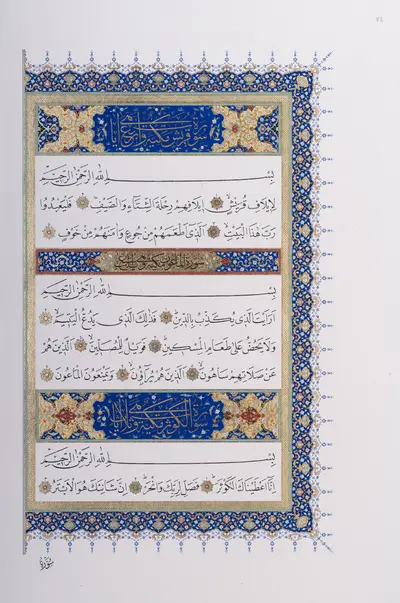 ٧٤
سورة قريش مكية و اربع آيات
بِسْمِ اللهِ الرَّحْمٰنِ الرَّحِيمِ
لِإِيلَافِ قُرَيْشٍ إِيلَافِهِمْ رِحْلَةَ الشِّتَاءِ وَالصَّيْفِ فَلْيَعْبُدُوا
رَبَّ هٰذَا الْبَيْتِ الَّذِى أَطْعَمَهُمْ مِنْ جُوعٍ وَآمَنَهُمْ مِنْ خَوْفٍ
بِسْمِ اللهِ الرَّحْمٰنِ الرَّحِيمِ
أَرَأَيْتَ الَّذِى يُكَذِّبُ بِالدِّينِ فَذٰلِكَ الَّذِى يَدُعُّ الْيَتِيمَ
وَلَا يَحُضُّ عَلٰى طَعَامِ الْمِسْكِينِ فَوَيْلٌ لِلْمُصَلِّينَ الَّذِينَ هُمْ
عَنْ صَلَاتِهِمْ سَاهُونَ الَّذِينَ هُمْ يُرَاؤُنَ وَيَمْنَعُونَ الْمَاعُونَ
سورة الكوثر مكية
بِسْمِ اللهِ الرَّحْمٰنِ الرَّحِيمِ
إِنَّا أَعْطَيْنَاكَ الْكَوْثَرَ فَصَلِّ لِرَبِّكَ وَانْحَرْ إِنَّ شَانِئَكَ هُوَ الْأَبْتَرُ
سورة